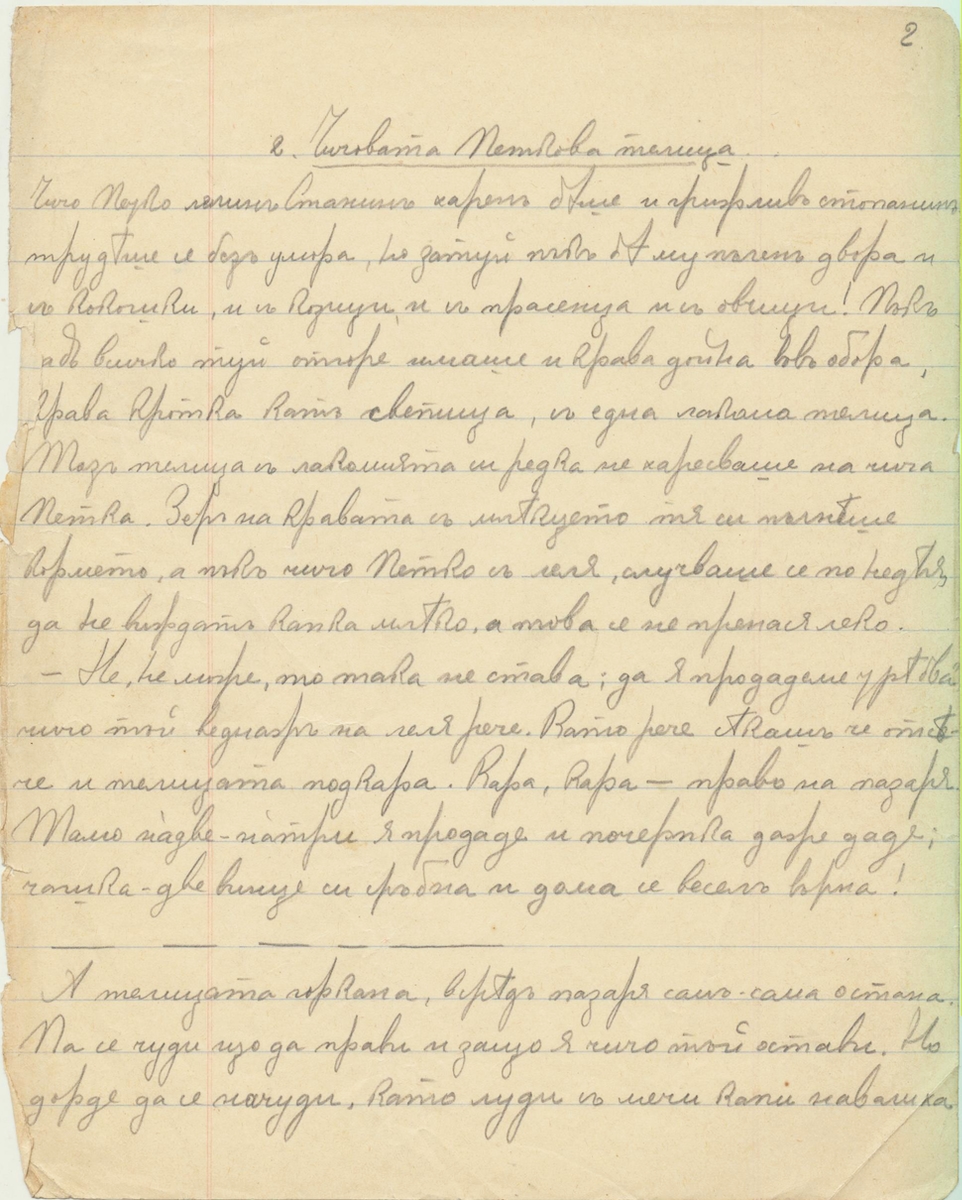 2
2. Чичовата Петкова телица
Чичо Петко лелинъ Станинъ харенъ бѣше и грижливъ стопанинъ
трудѣше се безъ умора, но затуй пъкъ бѣ му пъленъ двора и
съ кокошки, и съ козици, и съ прасенца и съ овчици! Пъкъ
адъ всичко туй отгоре имаше и крава дойна въвъ обора,
крава кротка катъ светица, съ една лакома телица.
Тазъ телица съ лакомията си редка не харесваше на чича
Петка. Зеръ на кравата съ млѣкцето тя си пълнѣше
коремчето, а пъкъ чичо Петко съ леля, случваше се по недѣля,
да не виждатъ капка млѣко, а това се не пренася леко.
– Не, не може, то така не става; да я продадеме трѣбва!
чичо той веднажъ на леля рече. Като рече сѣкашъ че отсѣ-
че и телицата подкара. Кара, кара — право на пазаря.
Тамо на̀две-на̀три я продаде и почерпка даже даде;
чашка-две винце си сръбна и дома се веселъ върна!
А телицата горкана, всрѣдъ пазаря самъ-сама остана.
Па се чуди що да прави и защо я чичо той остави. Но
дорде да се начуди, като луди съ мечи капи навалиха